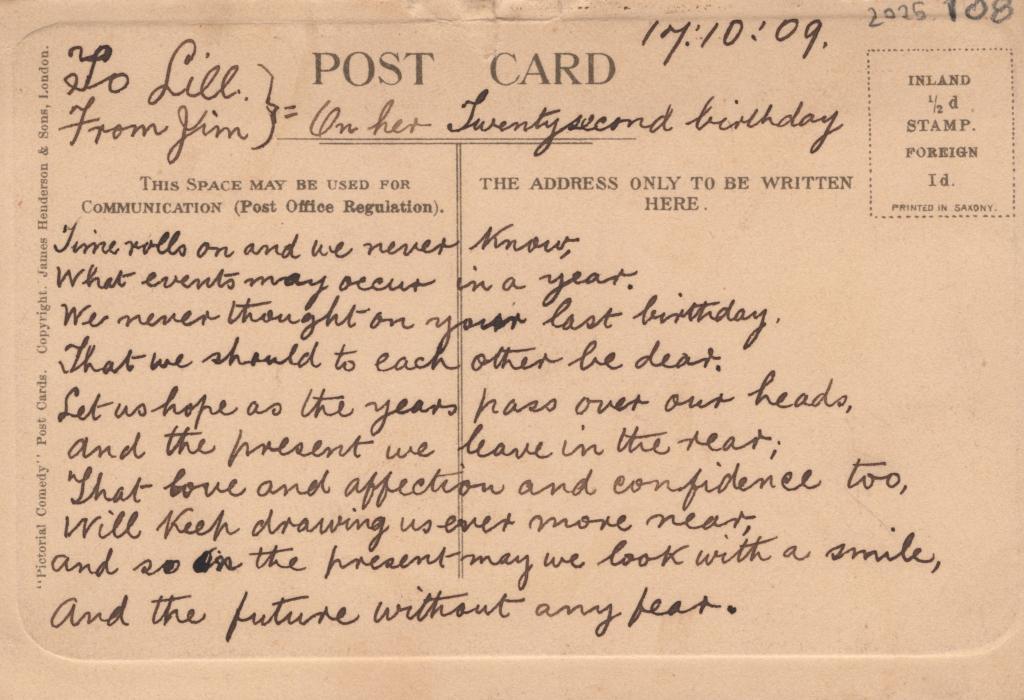 2026 108
17:10:09.
To Lill.
From Jim } = On her Twentysecond birthday
POST CARD
INLAND
½ d
STAMP.
FOREIGN
1d.
PRINTED IN SAXONY.
THIS SPACE MAY BE USED FOR
COMMUNICATION (Post Office Regulation).
THE ADDRESS ONLY TO BE WRITTEN
HERE.
Time rolls on and we never know,
What events may occur in a year.
We never thought on your last birthday.
That we should to each other be dear.
Let us hope as the years pass over our heads,
and the present we leave in the rear;
That love and affection and confidence too,
Will keep drawing us ever more near,
and so in the present may we look with a smile,
And the future without any fear.
"Pictorial Comedy" Post Cards. Copyright. James Henderson & Sons, London.